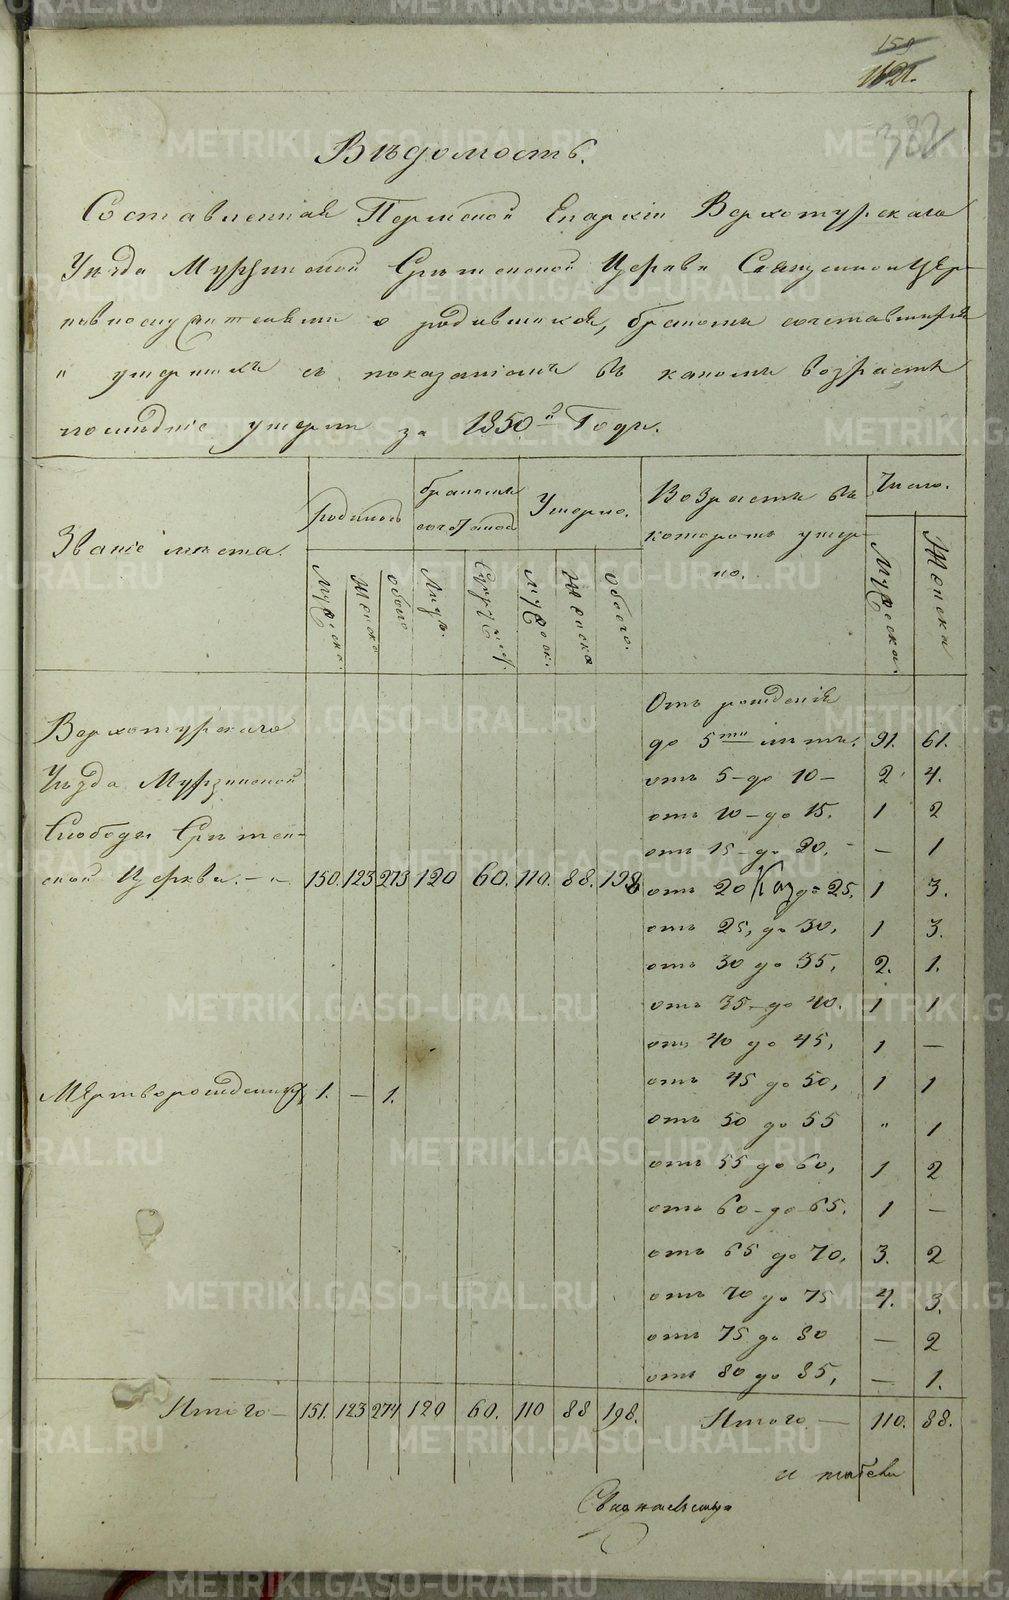 159
162.
382
Вѣдомость.
Составленная Пермской Епархіи Верхотурскаго
Уѣзда Мурзинской Срѣтенской Церкви Священноцер-
ковнослужителями о родившихся, бракомъ сочетавшихся
и умершихъ съ показаніемъ въ какомъ возрастѣ
послѣдніе умерли за 1850й Годъ.
Званіе мѣста.
Родилось
бракомъ сочеталось
Умерло.
Возрастъ въ
которомъ умер-
ло.
Число.
Мужеска.
Женска
обоего
Лицъ.
Супружес.
Мужеск.
Женска
Обоего.
Мужеска.
Женска
Верхотурскаго
Уѣзда Мурзинской
Слободы Срѣтен-
ской Церкви. 150. 123 273 120 60. 110. 88. 198
Мертворожденныхъ 1. — 1.
Отъ рожденія
до 5ти лѣтъ. 91. 61.
отъ 5 до 10 — 2 4.
отъ 10 до 15. 1 2
отъ 15 до 20. — 1
отъ 20 до 25. 1 3.
отъ 25, до 30, 1 3.
отъ 30 до 35, 2. 1.
отъ 35 до 40. 1 1
отъ 40 до 45, 1 —
отъ 45 до 50, 1 1
отъ 50 до 55 „ 1
отъ 55 до 60, 1 2
отъ 60 до 65. 1 —
отъ 65 до 70, 3. 2
отъ 70 до 75 4. 3.
отъ 75 до 80 — 2
отъ 80 до 85, — 1.
Итого — 151. 123 274 120 60. 110 88 198. Итого — 110. 88.
METRIKI.GASO-URAL.RU